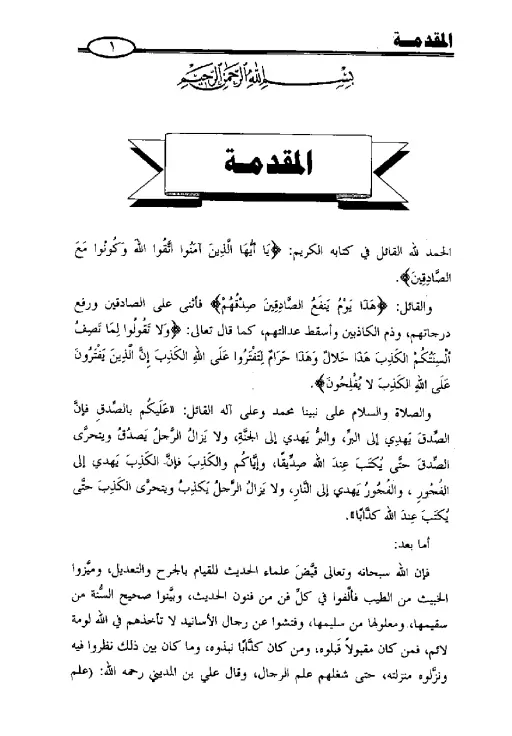 المقدمة
١
بسم الله الرحمن الرحيم
المقدمة
الحمد لله القائل في كتابه الكريم: ﴿يَا أَيُّهَا الَّذِينَ آمَنُوا اتَّقُوا اللهَ وَكُونُوا مَعَ
الصَّادِقِينَ﴾.
والقائل: ﴿هَذَا يَوْمُ يَنفَعُ الصَّادِقِينَ صِدْقُهُمْ﴾ فأثنى على الصادقين ورفع
درجاتهم، وذم الكاذبين وأسقط عدالتهم، كما قال تعالى: ﴿وَلا تَقُولُوا لِمَا تَصِفُ
أَلْسِنَتُكُمُ الْكَذِبَ هَذَا حَلالٌ وَهَذَا حَرَامٌ لِتَفْتَرُوا عَلَى اللهِ الْكَذِبَ إِنَّ الَّذِينَ يَفْتَرُونَ
عَلَى اللهِ الْكَذِبَ لا يُفْلِحُونَ﴾.
والصلاة والسلام على نبينا محمد وعلى آله القائل: «عَلَيكُم بالصِّدقِ فإنَّ
الصِّدقَ يَهدِي إلى البِرِّ، والبرُّ يَهدِي إلى الجنَّةِ، ولا يزالُ الرَّجلُ يَصدُقُ ويتحرَّى
الصِّدقَ حتَّى يُكتَبَ عِندَ الله صِدِّيقًا، وإيَّاكُم والكَذِبَ فإنَّ الكَذِبَ يَهدِي إلى
الفُجُورِ ، والفُجُورُ يَهدِي إلى النَّارِ، ولا يَزالُ الرَّجلُ يَكذِبُ ويتحرَّى الكَذِبَ حتَّى
يُكتَبَ عِندَ الله كذَّابًا».
أما بعد:
فإن الله سبحانه وتعالى قيَّضَ علماء الحديث للقيام بالجرح والتعديل، وميَّزوا
الخبيث من الطيب فألَّفوا في كلِّ فن من فنون الحديث، وبيَّنوا صحيح السُّنة من
سقيمها، ومعلولها من سليمها، وفتشوا عن رجال الأسانيد لا تأخذهم في الله لومة
لائم، فمن كان مقبولاً قبلوه، ومن كان كذَّابًا نبذوه، وما كان بين ذلك نظروا فيه
ونزَّلوه منزلته، حتى شغلهم علم الرجال، وقال علي بن المديني رحمه الله: (علم